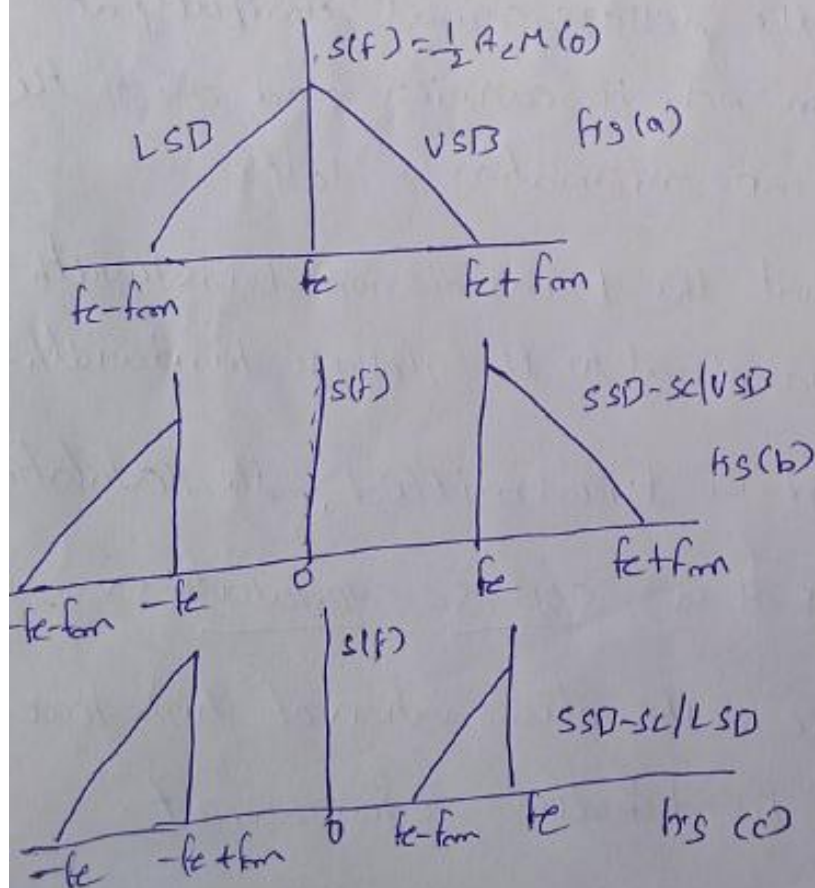 S(f) = 1/2 AcM(0)
LSB
USB
fig(a)
fc-fm
fc
fc+fm
S(f)
SSB-SC/USB
fig(b)
-fc-fm
-fc
0
fc
fc+fm
S(f)
SSB-SC/LSB
-fc
-fc+fm
0
fc-fm
fc
fig (c)